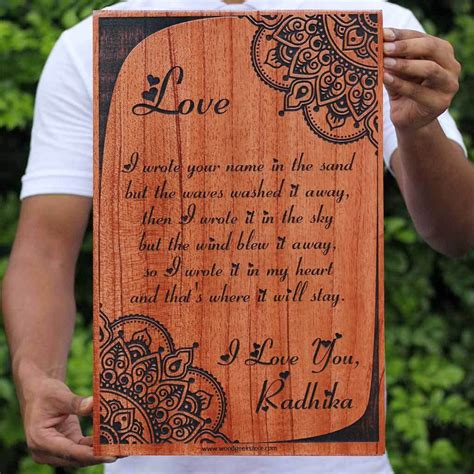 Love
I wrote your name in the sand
but the waves washed it away,
then I wrote it in the sky
but the wind blew it away,
so I wrote it in my heart
and that's where it will stay.
I Love You,
Radhika
www.woodgeekstore.com